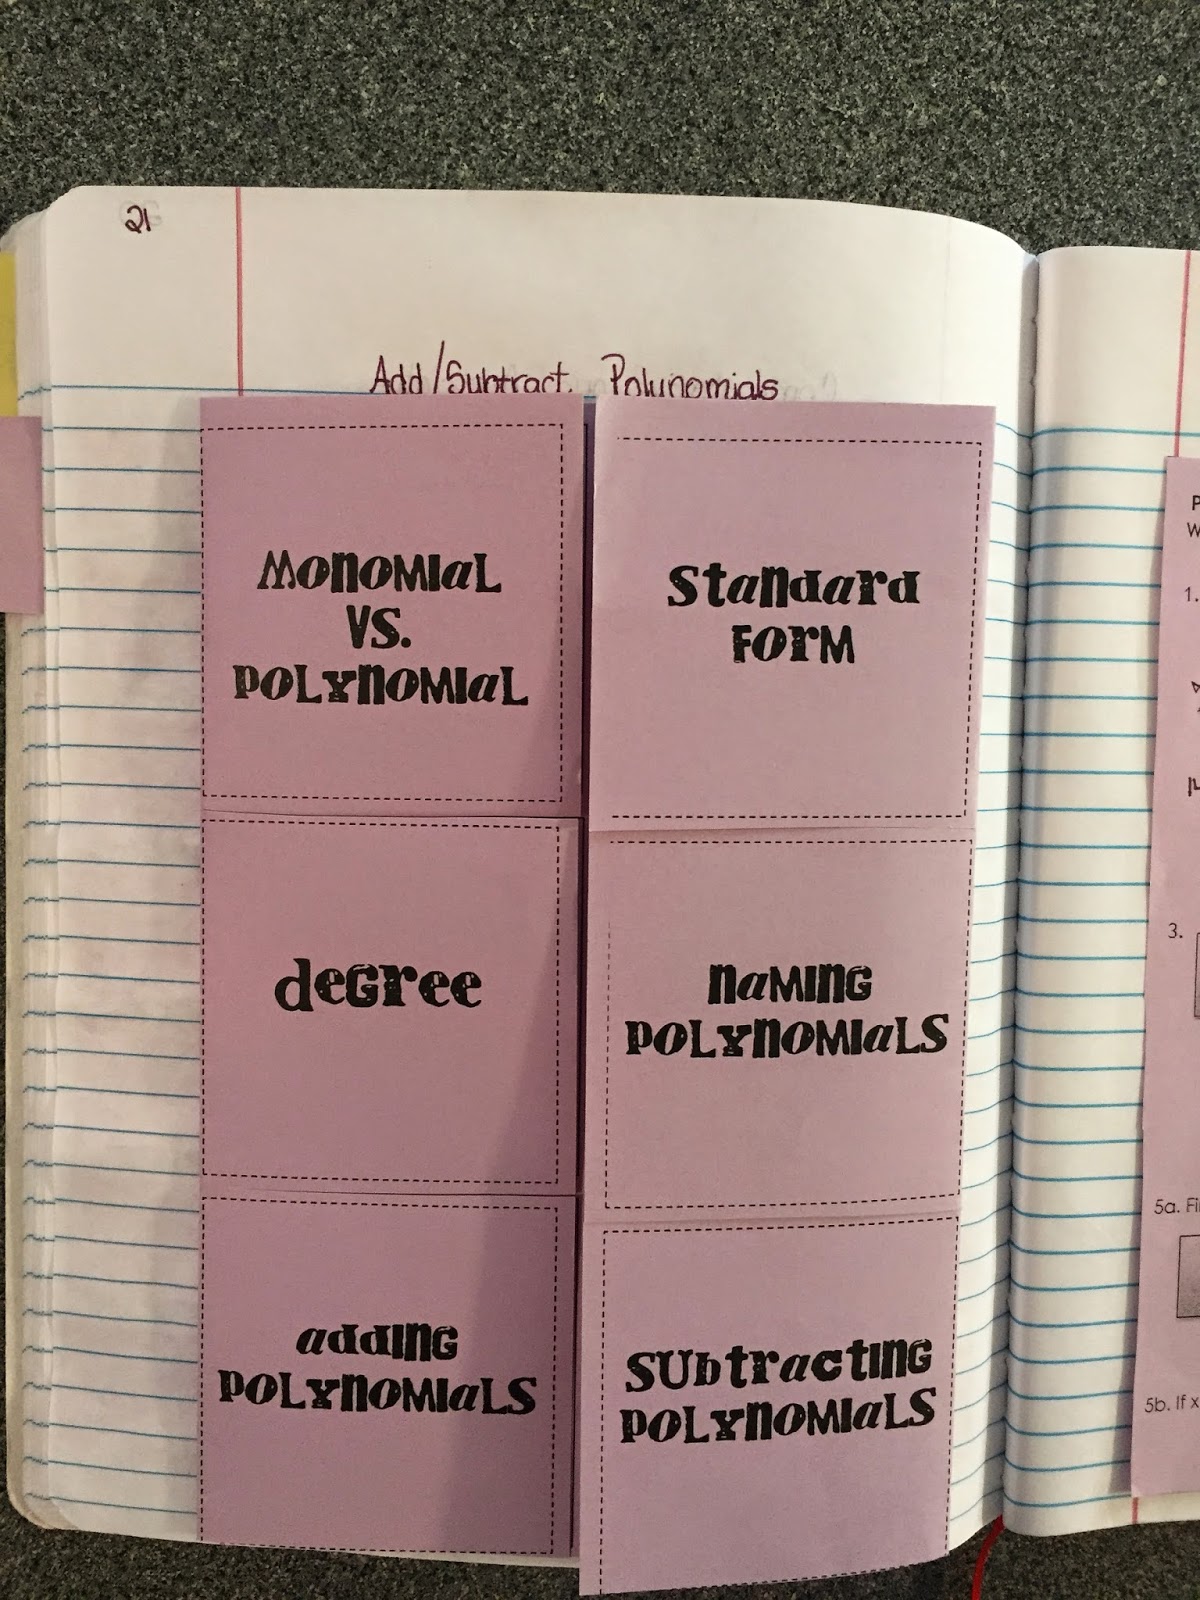 21
Add/Subtract Polynomials
MONOMIaL
VS.
POLYNOMIaL
Standard
FOrM
deGree
naMING
POLYNOMIaLS
addING
POLYNOMIaLS
SUbtracTING
POLYNOMIaLS
1.
3.
5a. Fi
5b. If x